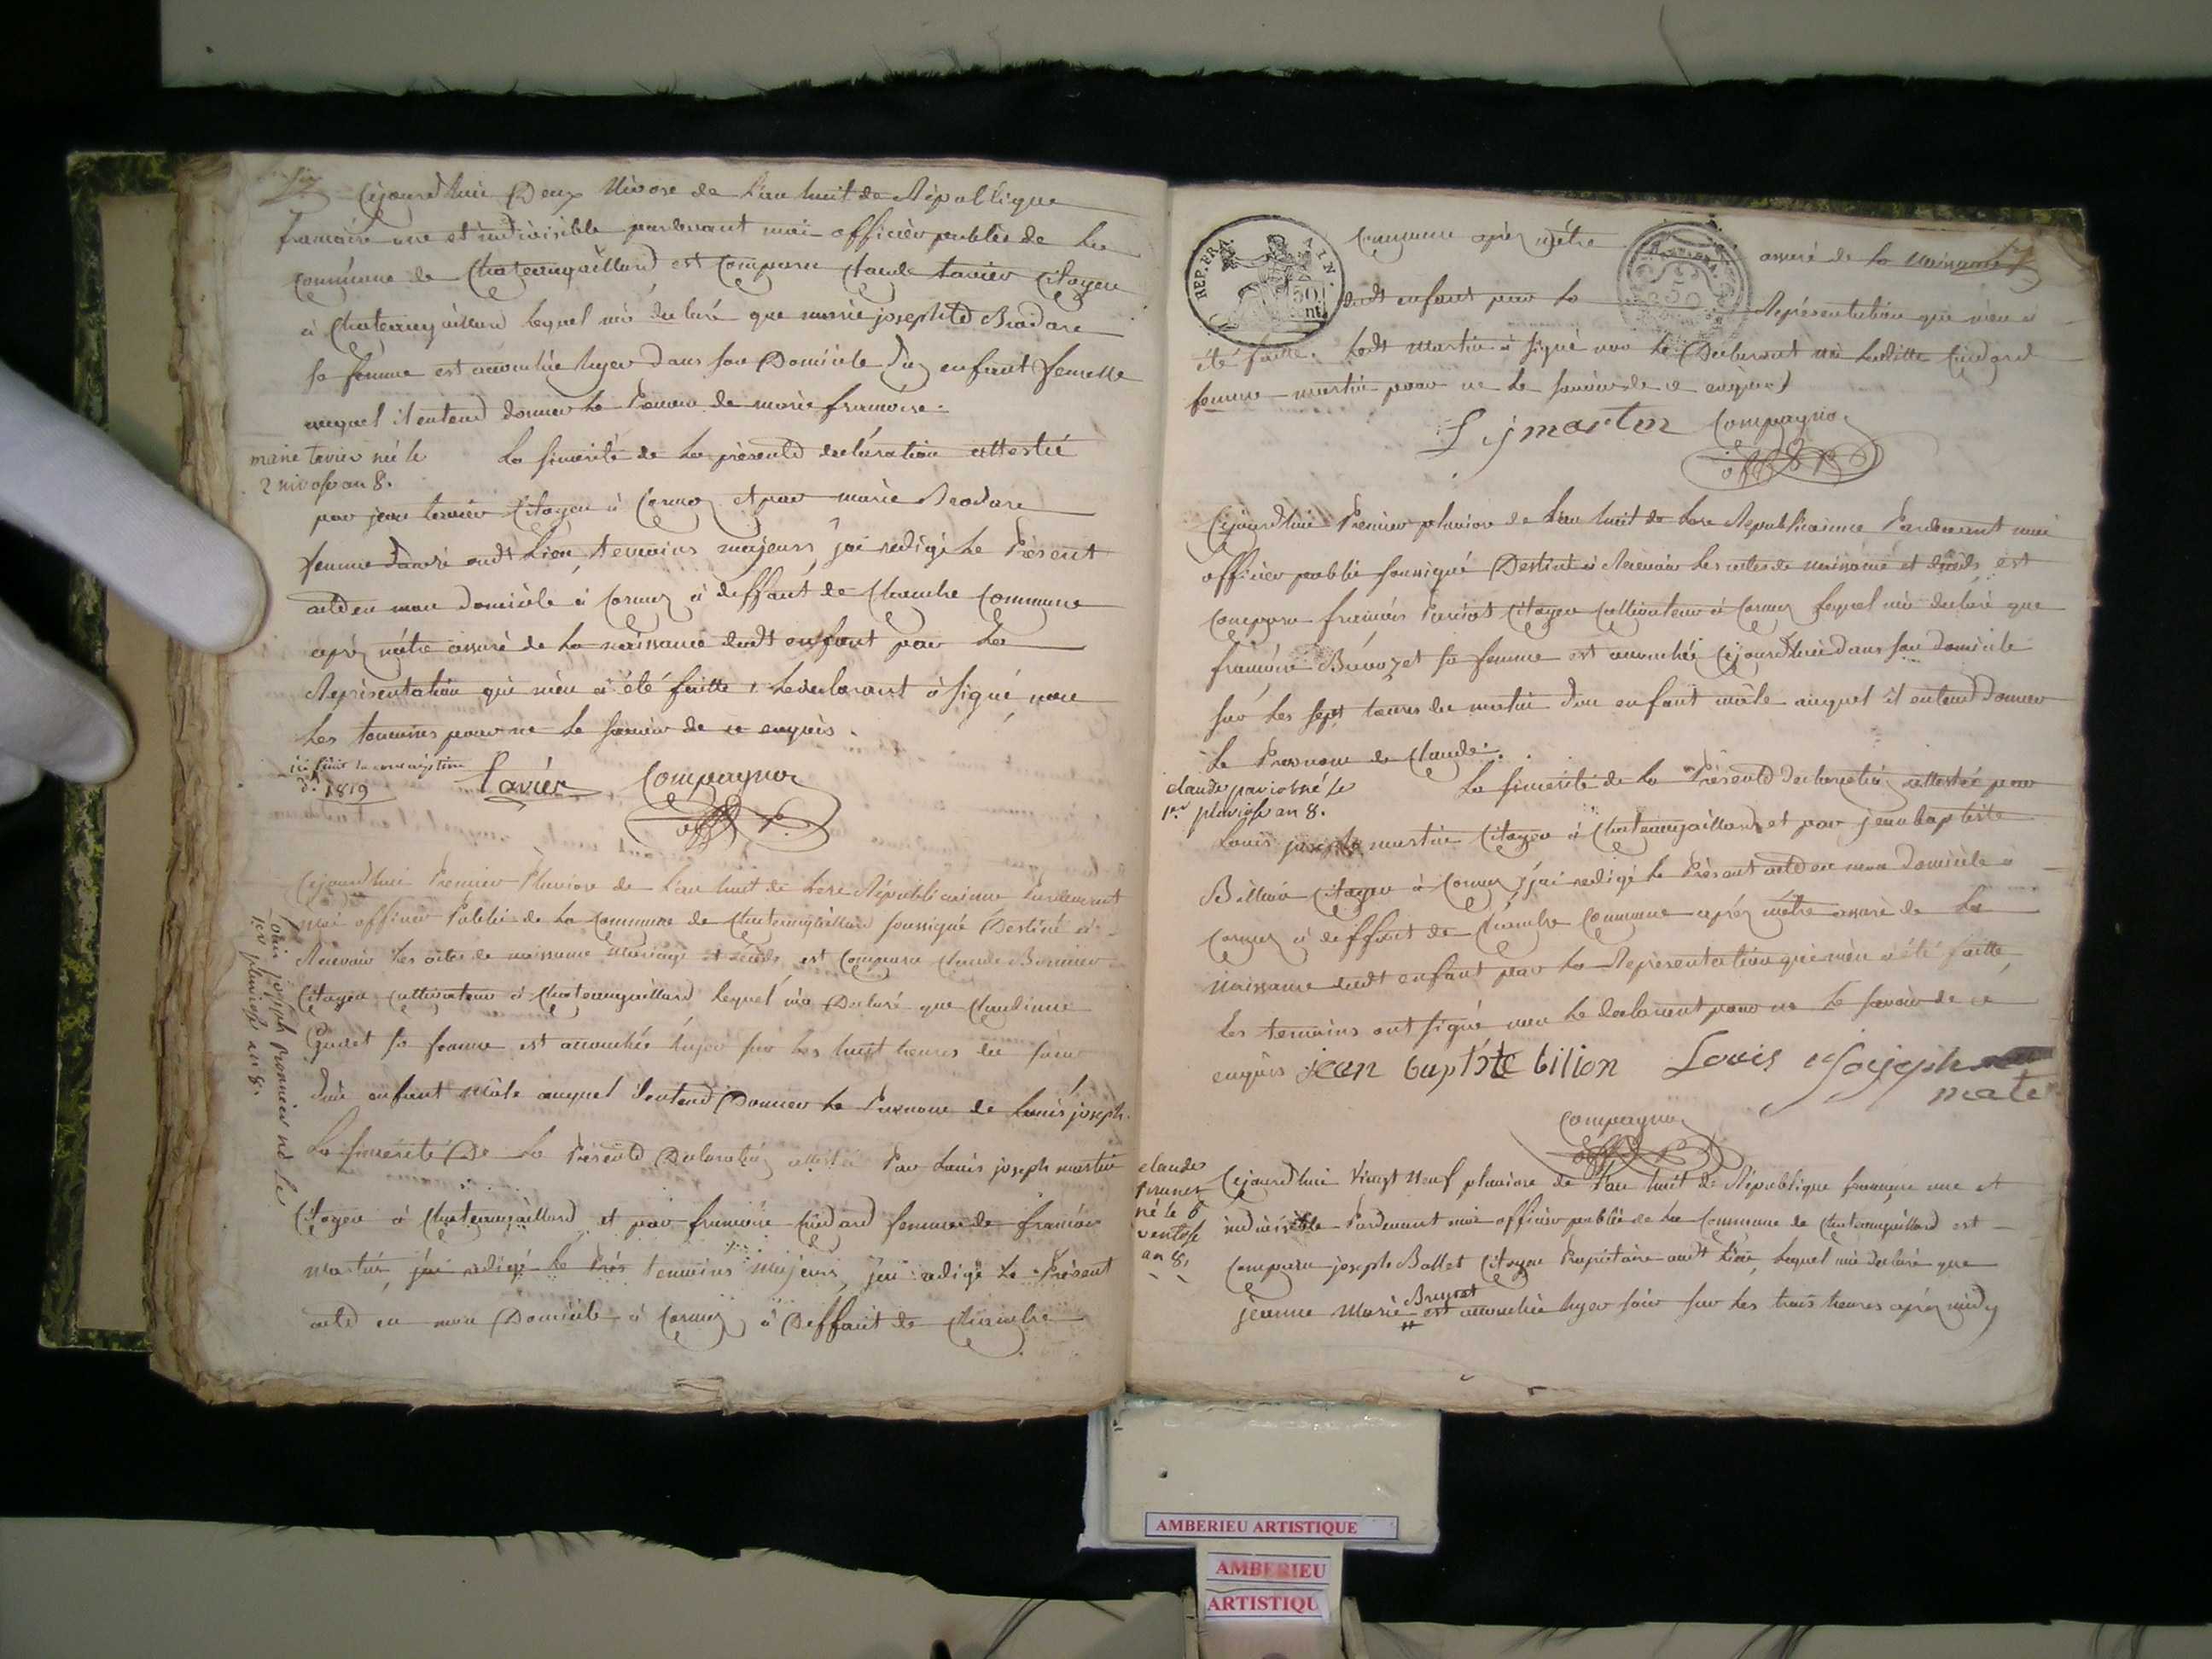 Cejourdhui Deux Nivose de l'an huit de République
francaise une et indivisible pardevant moi officier public de la
Commune de Chateaugaillard est Comparu Claude tavier Citoyen
à Chateaugaillard lequel m'a declaré que marie josephte
sa femme est accouchée hyer dans son Domicile d'un enfant femelle
auquel il entend donner le de marie francoise.
marie tavier née le
2 nivose an 8.
La sincerité de la présente declaration attestée
par jean tavier Citoyen à Cormoz et par marie
femme audt Lieu, temoins majeurs j'ai redigé le Présent
acte en mon domicile à Cormoz à deffaut de Chambre Commune
après m'etre assuré de la naissance dudt enfant par la
Représentation qui m'en a été faitte, le declarant a signé non
les temoins pour ne le savoir de ce enquis.
ici finit la conscription
de 1819
tavier Compagnon
off. P.
Cejourdhui Premier Pluviose de l'an huit de l'ere Républicaine Pardevant
moi officier Public de la Commune de Chateaugaillard soussigné Destiné à
Recevoir les actes de naissance Mariage et décès est Comparu Claude
Citoyen Cultivateur à Chateaugaillard lequel m'a Declaré que Claudine
sa femme est accouchée hyer sur les huit heures du soir
d'un enfant mâle auquel il entend Donner le Prenome de Louis joseph.
Louis joseph né le
1er pluviose an 8.
La sincerité De la Présente Declaration attestée Par Louis joseph martin
Citoyen à Chateaugaillard et par francoise femme de francois
Martin, j'ai redigé le Prés temoins majeurs, j'ai redigé le Présent
acte en mon Domicile à Cormoz à Deffaut de Chambre
REP. FRA. AIN.
50
Commune après m'etre assuré de la Naissance
dudt enfant par la Représentation qui m'en a
été faitte. Ledt Martin à signé non le Declarant ni laditte
femme martin pour ne le savoir de ce enquis
L j martin Compagnon
off P
Cejourdhui Premier pluviose de l'an huit de l'ere Republicaine Pardevant moi
officier public soussigné Destiné à Recevoir les actes de naissance et décès est
Comparu francois Pariot Citoyen Cultivateur à Cormoz lequel m'a declaré que
francoise sa femme est accouchée Cejourdhui dans son domicile
sur les sept heures du matin d'un enfant mâle auquel il entend Donner
le Prenome de Claude.
claude pariot né le
1er pluviose an 8.
La sincerité de la Présente declaration attestée par
Louis joseph martin Citoyen à Chateaugaillard et par jean baptiste
Billion Citoyen à Cormoz j'ai redigé le Présent acte en mon domicile à
Cormoz à deffaut de Chambre Commune après m'etre assuré de la
Naissance dudt enfant par la Représentation qui m'en a été faitte,
les temoins ont signé non le declarant pour ne le savoir de ce
enquis jean baptiste bilion Louis Jojeph
mate
Compagnon
off P
claude
brunet
né le 6
ventose
an 8.
Cejourdhui Vingt Neuf pluviose de l'an huit de République francaise une et
indivisible Pardevant moi officier public de la Commune de Chateaugaillard est
Comparu joseph Ballet Citoyen Propriétaire audt Lieu, lequel m'a declaré que
jeanne Marie Brunet est accouchée hyer soir sur les trois heures après midy
AMBERIEU ARTISTIQUE
AMBERIEU
ARTISTIQU